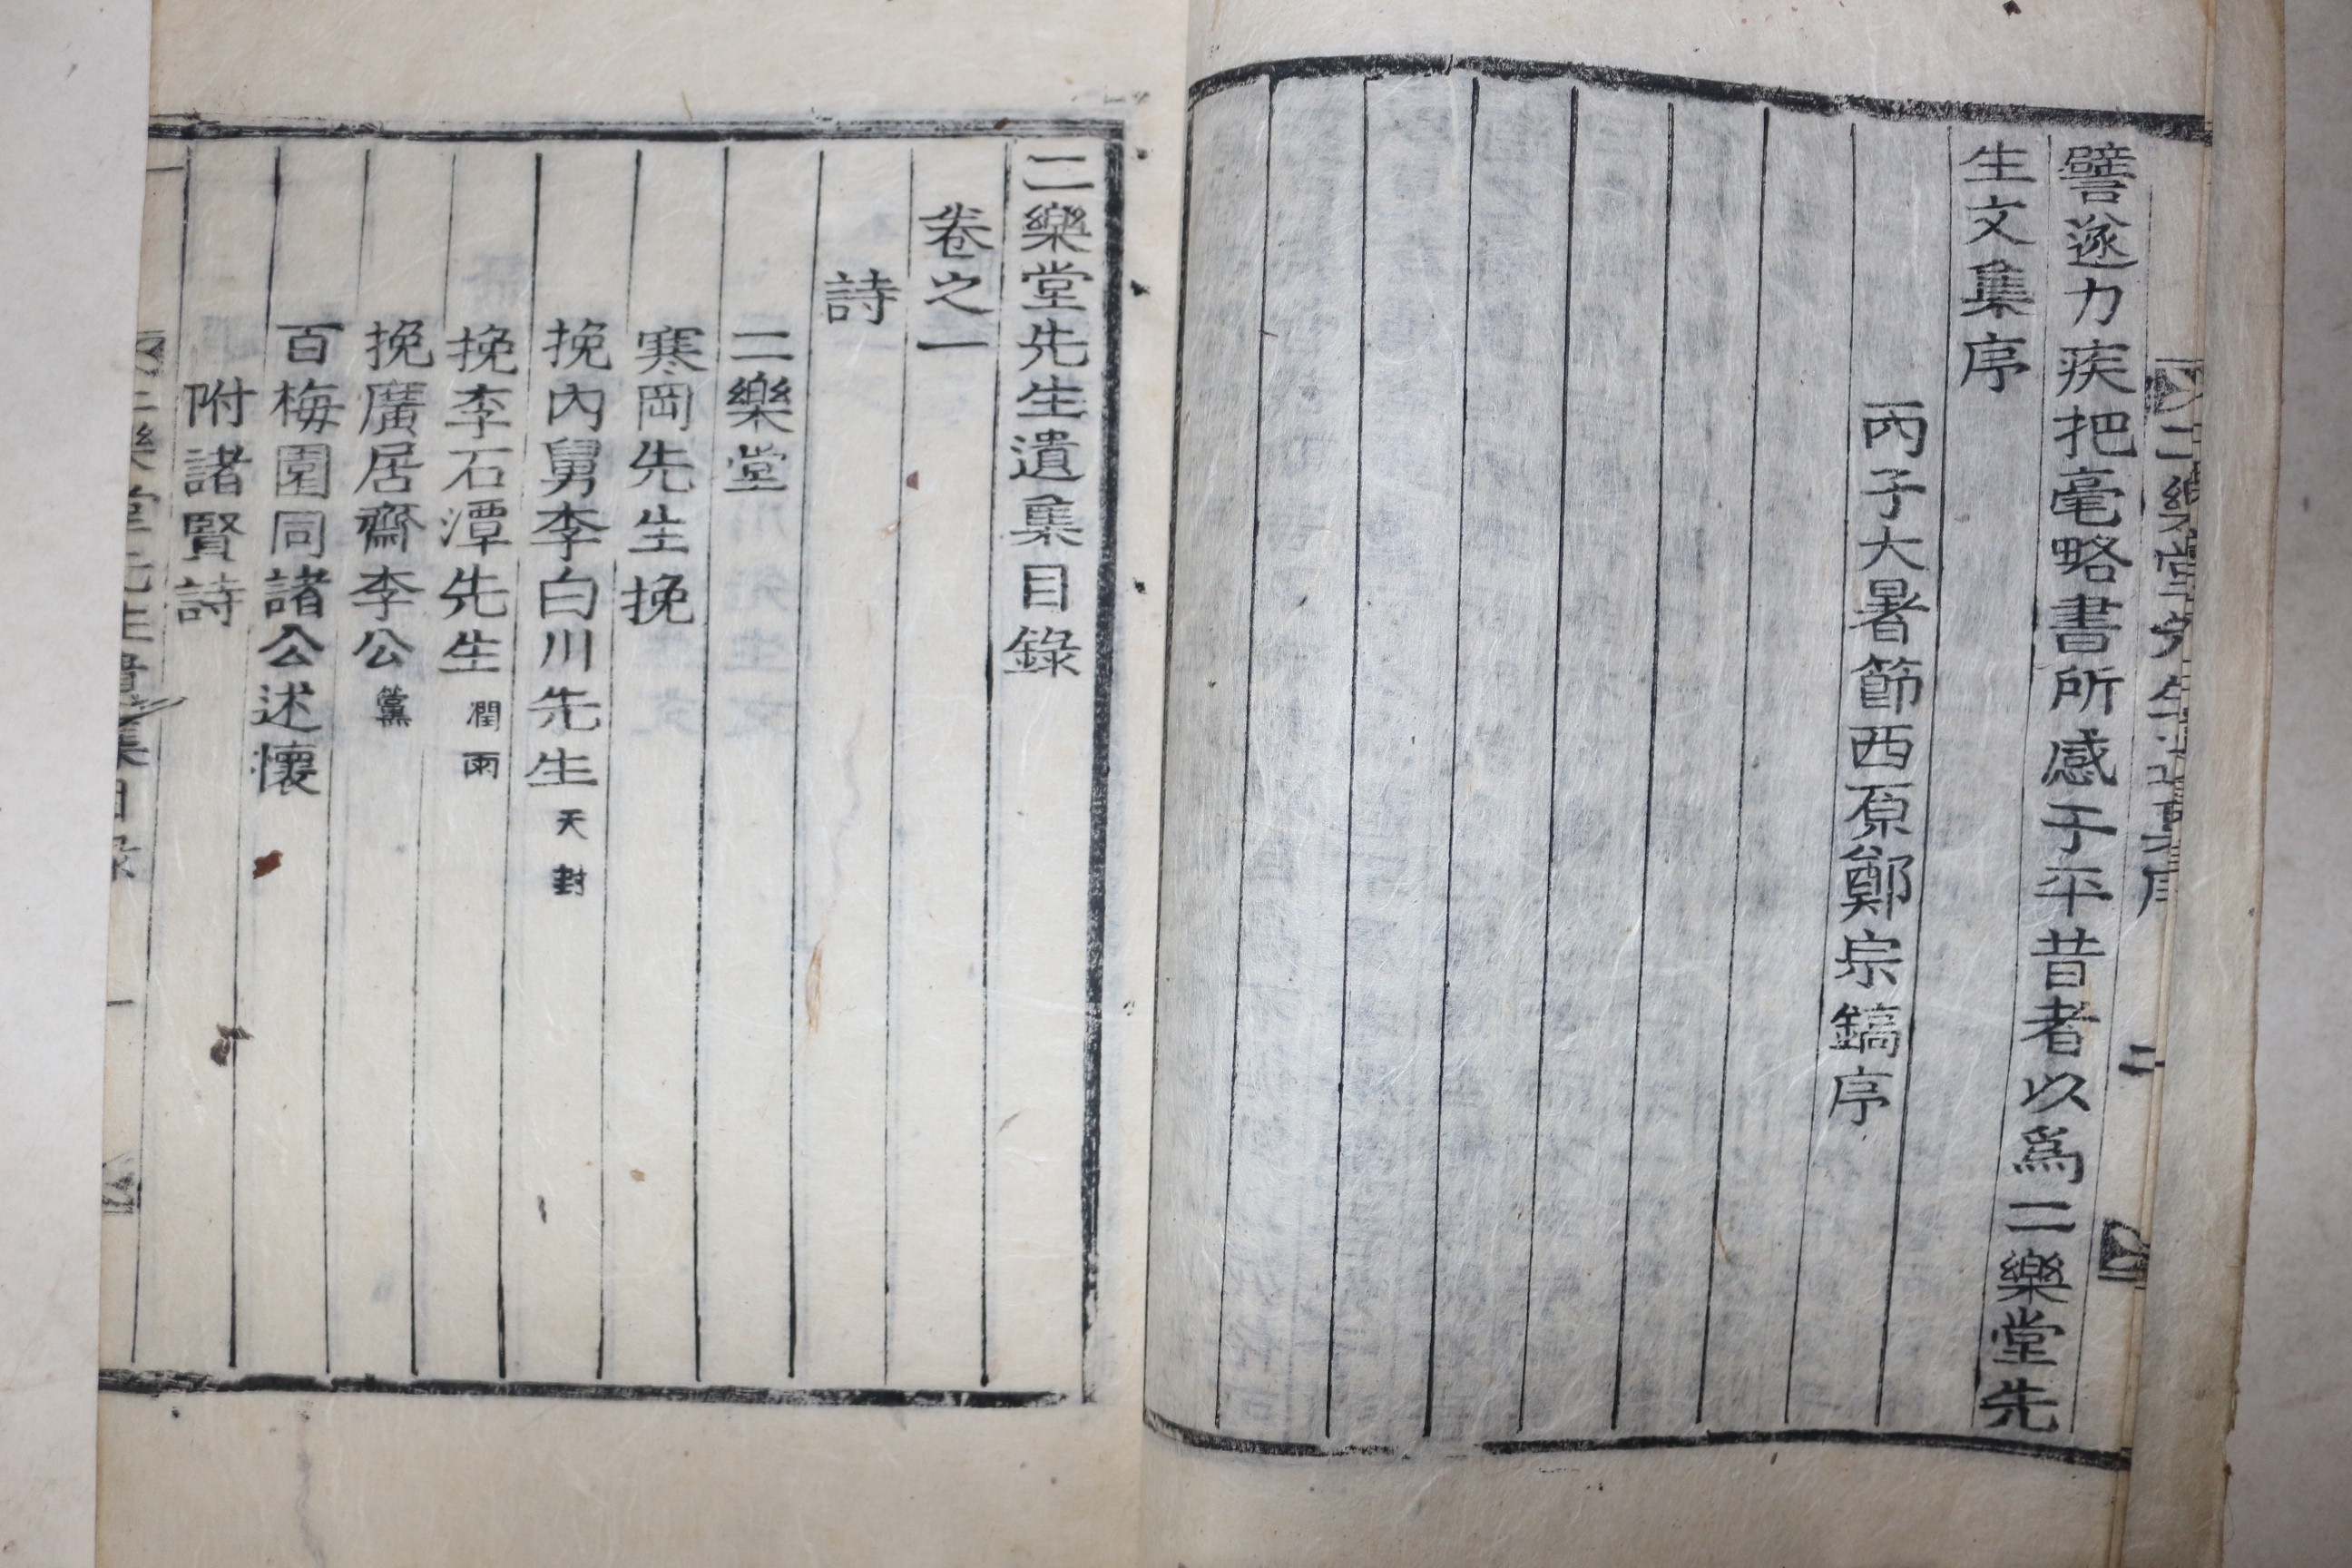 二樂堂先生遺集序 二
譬遂力疾把毫略書所感于平昔者以爲二樂堂先
生文集序
丙子大暑節西原鄭宗鎬序
二樂堂先生遺集目錄
卷之一
詩
二樂堂
寒岡先生挽
挽內舅李白川先生 天封
挽李石潭先生 潤雨
挽廣居齋李公 簹
百梅園同諸公述懷
附諸賢詩
二樂堂先生遺集目錄 一